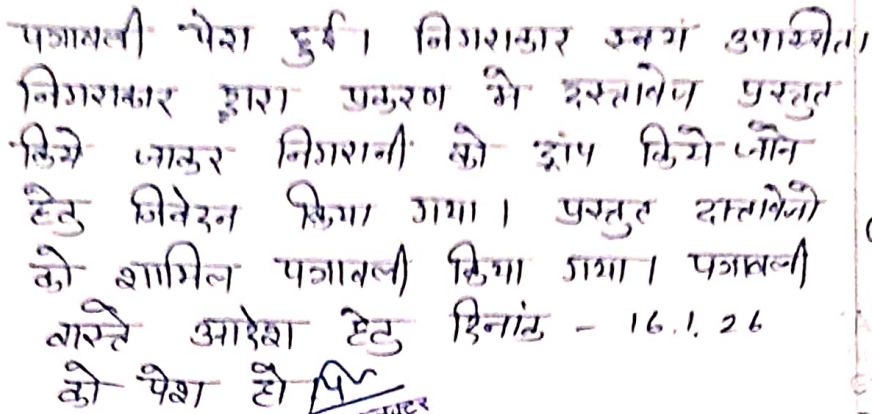 पत्रावली पेश हुई। निगराकार स्वयं उपस्थित।
निगराकार द्वारा प्रकरण मे दस्तावेज प्रस्तुत
किये जाकर निगरानी को ड्रांप किये जाने
हेतु निवेदन किया गया। प्रस्तुत दस्तावेजो
को शामिल पत्रावली किया गया। पत्रावली
वास्ते आदेश हेतु दिनांक - 16.1.26
को पेश हो